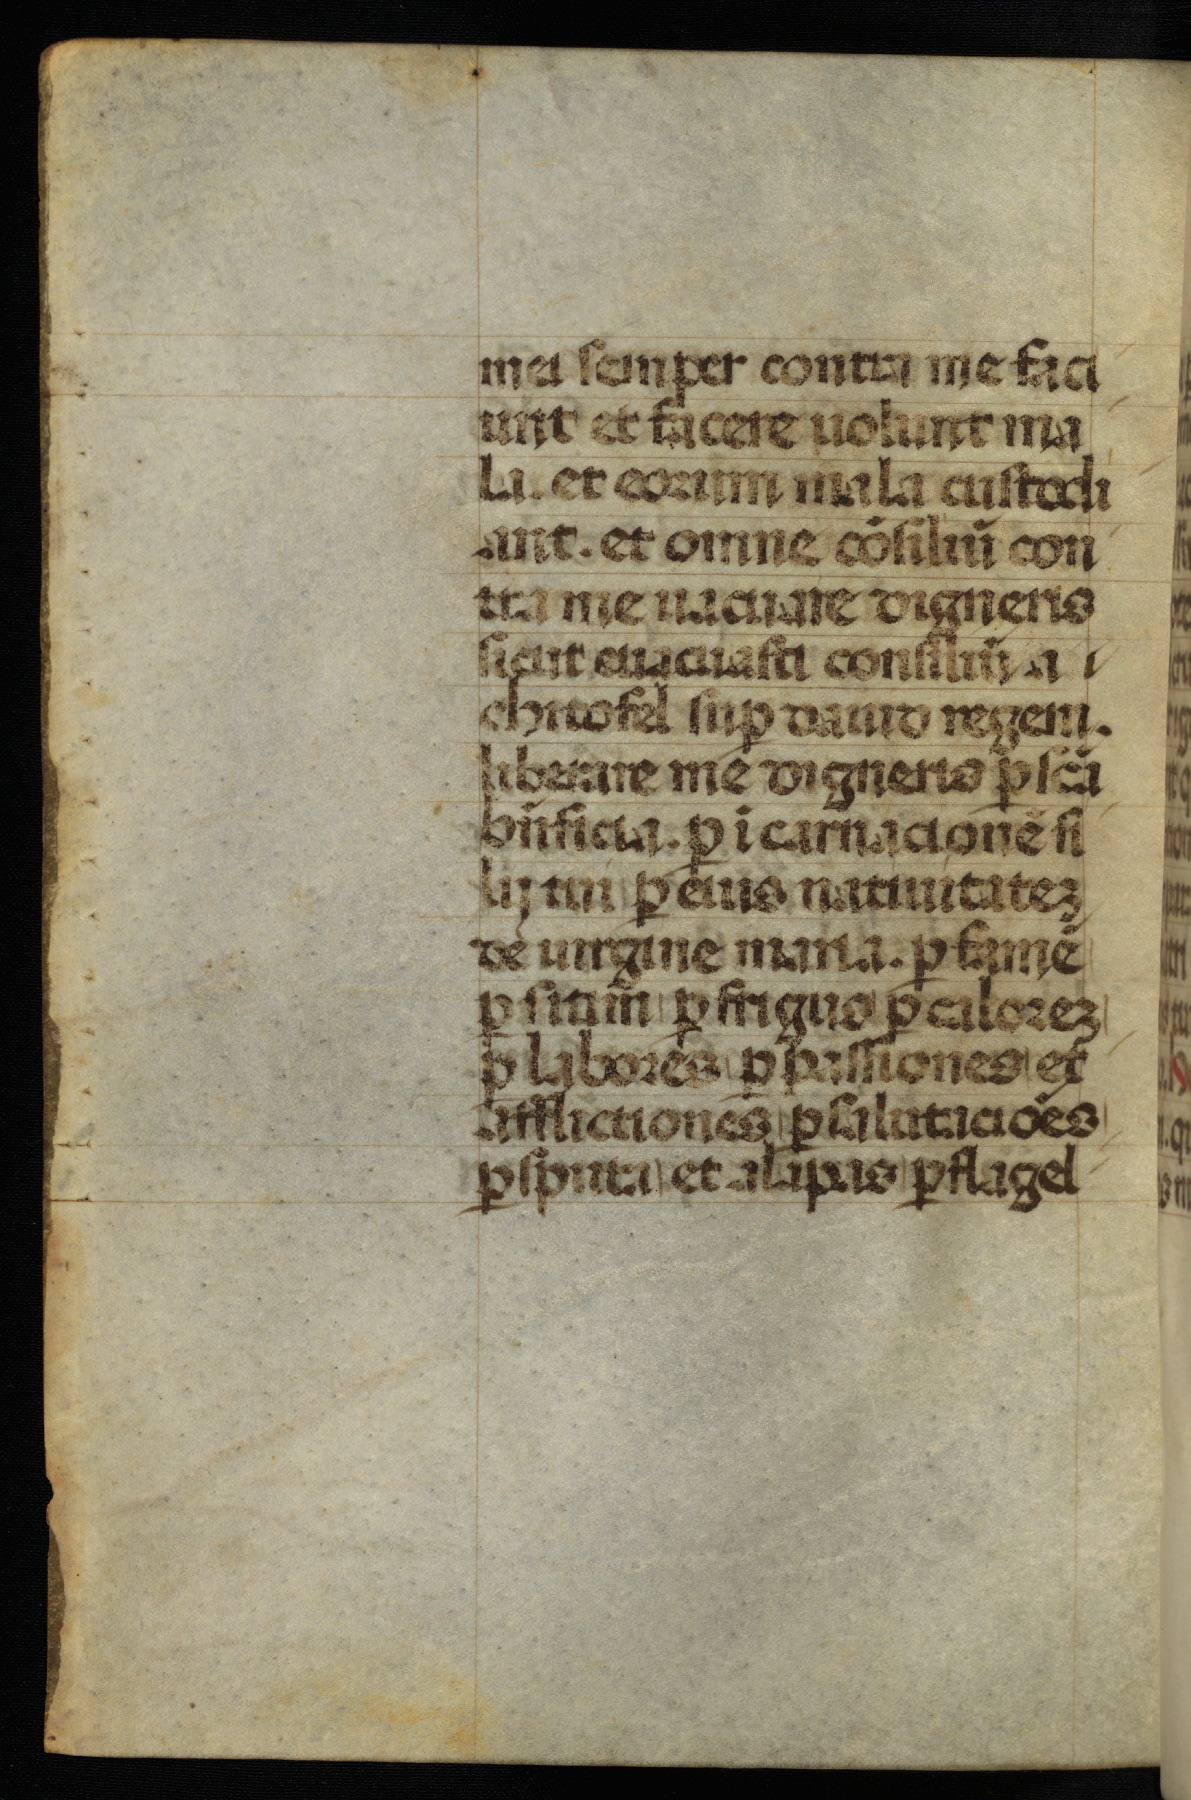 mei semper contra me faci
unt et facere uolunt ma
la. et eorum mala custodi
ant. et omne cōsiliū con
tra me uacuare digneris
sicut euacuasti consiliū a
chitofel sup dauid regem.
liberare me digneris p scā
bn̄ficia. p i carnacionē fi
lij tui p eius natiuitatez
de uirgine maria. p famē
p sitim̄ p frigus p calorez
p labores p passiones et
afflictiones p salutacioēs
p sputa et alapas p flagel